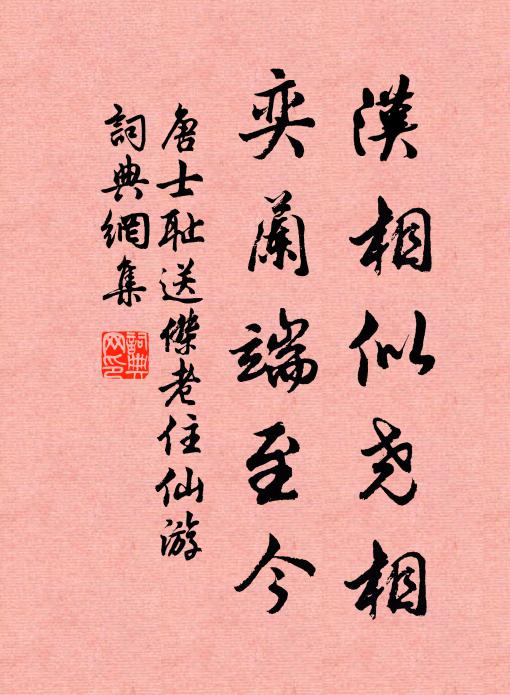 漢相似尧相
奕蘭端至今
唐士耻送傑老住仙游
詞典網集
詞典网印